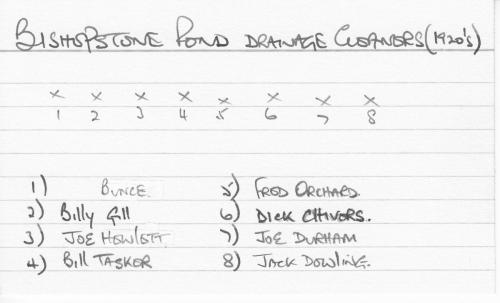 BISHOPSTONE POND DRAINAGE CLEANERS (1920's)
x x x x x x x x
1 2 3 4 5 6 7 8
1) BUNCE.
2) Billy Gill
3) JOE HOWLETT
4) Bill TASKER
5) FRED ORCHARD
6) DICK CHIVERS.
7) JOE DURHAM
8) JACK DOWLING.